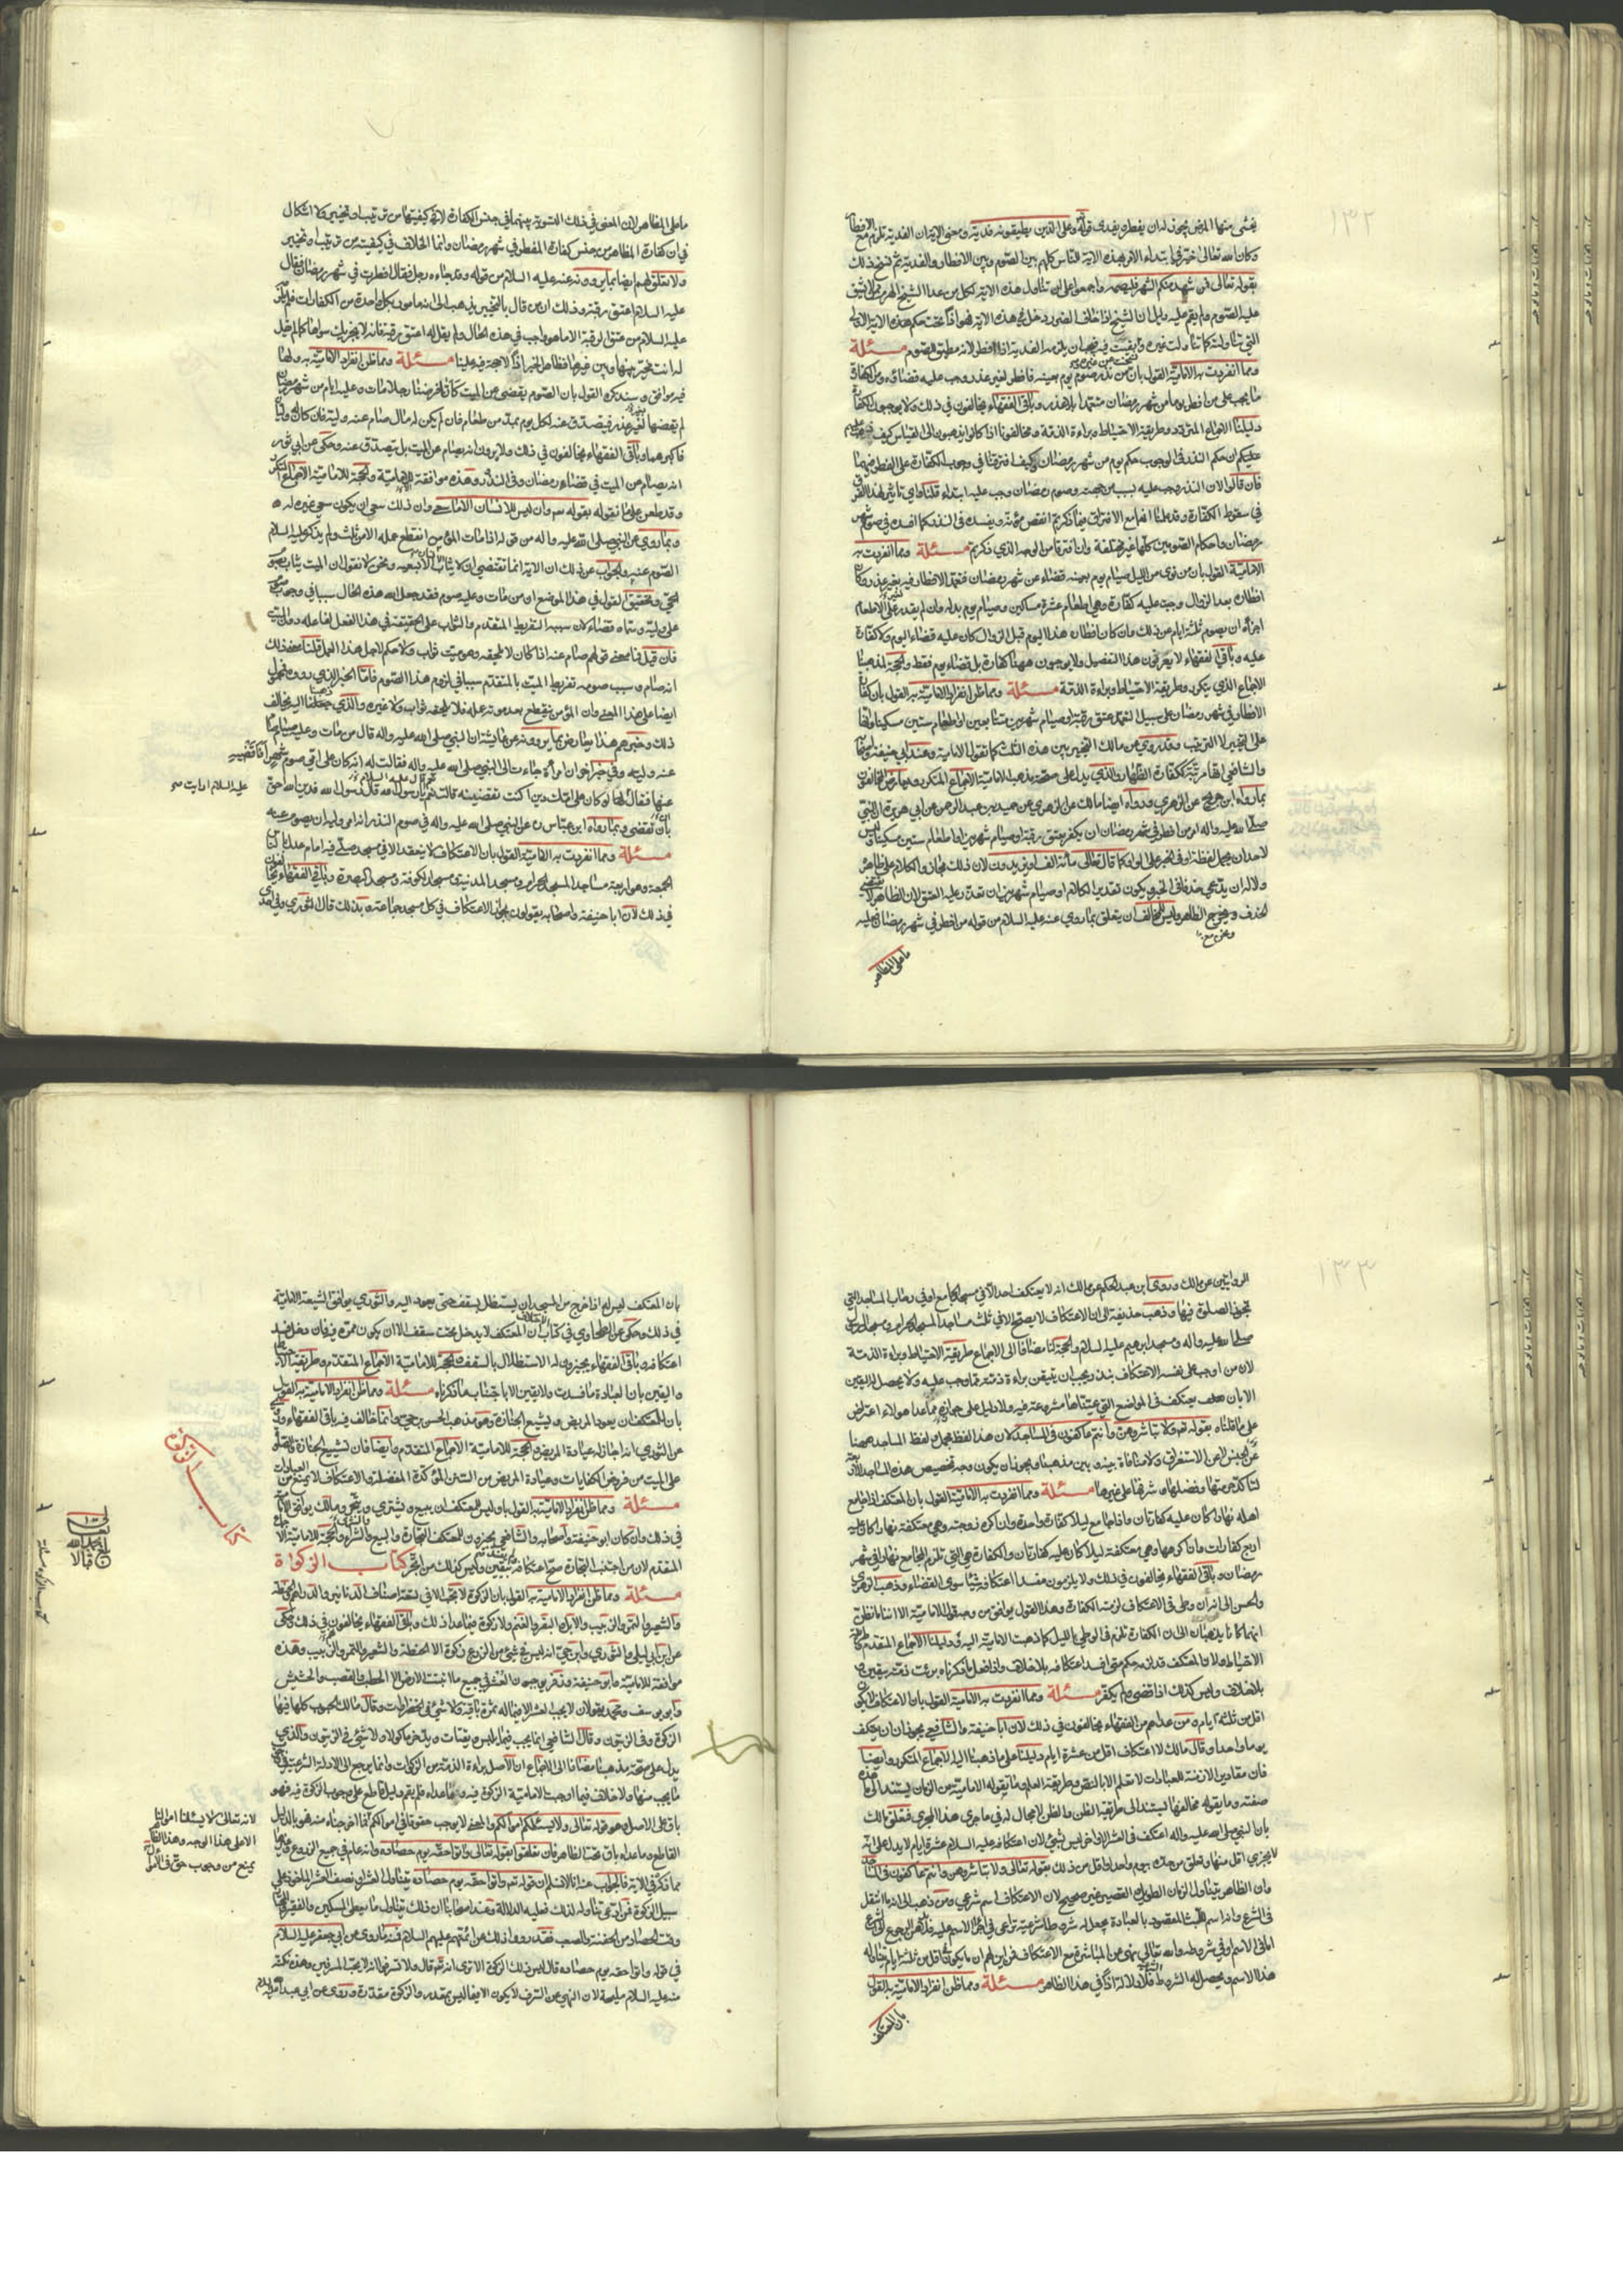 ١٣٢
يخشى منها المرض يجوز له ان يفطر ويفدي قوله وعلى الذين يطيقونه فدية ومعنى الاية ان الفدية تلزم مع الافطار
وكان الله تعالى خير في ابتداء الامر بهذه الاية الناس كلهم بين الصوم وبين الافطار والفدية ثم نسخ ذلك
بقوله تعالى فمن شهد منكم الشهر فليصمه واجمعوا على ان تناول هذه الاية لكل من عدا الشيخ الهرم
عليه الصوم ولم يقم عليه دليل ان الشيخ اذا خاف الضرر دخل في هذه الاية فهو اذا تحت حكم هذه الاية الاولة
التي تناولته كما تناولت غيره فيجب ان يلزمه الفدية اذا افطر لانه مطيق للصوم مسئلة
ومما انفردت به الامامية القول بان من نذر صوم يوم بعينه فافطر لغير عذر وجب عليه قضاؤه ومن الكفارة
ما يجب على من افطر يوما من شهر رمضان متعمدا بلا عذر وباقي الفقهاء يخالفون في ذلك ولا يوجبون الكفارة
دليلنا الاجماع المتردد وطريقة الاحتياط وبراءة الذمة ومخالفونا اذا كانوا يذهبون الى القياس كيف
عليكم ان حكم النذر في الوجوب حكم يوم من شهر رمضان وكيف افترقا في وجوب الكفارة على المفطر فيهما
فان قالوا لان النذر وجب عليه بسبب من جهته وصوم رمضان وجب عليه ابتداء قلنا واي تاثير لهذا الفرق
في سقوط الكفارة وقد علمنا انهما مع الافتراق فيما ذكرتم
رمضان واحكام الصومين كلها غير مختلفة وان افترقا من الوجه الذي ذكرتم مسئلة ومما انفردت به
الامامية القول بان من نوى من الليل صيام يوم بعينه قضاء عن شهر رمضان فتعمد الافطار فيه بغير عذر وكان
افطاره بعد الزوال وجبت عليه كفارة وهي اطعام عشرة مساكين وصيام يوم بدله وان لم يقدر على الاطعام
اجزأه ان يصوم ثلثة ايام عن ذلك وان كان افطاره هذا اليوم قبل الزوال كان عليه قضاء اليوم ولا كفارة
عليه وباقي الفقهاء لا يعرفون هذا التفصيل ولا يوجبون ههنا كفارة بل قضاء يوم فقط والحجة لمذهبنا
الاجماع الذي يتكرر وطريقة الاحتياط وبراءة الذمة مسئلة ومما ظن انفراد الامامية به القول بان كفارة
الافطار في شهر رمضان على سبيل التعمد عتق رقبة او صيام شهرين متتابعين او اطعام ستين مسكينا وانها
على التخيير لا الترتيب وقد روي عن مالك التخيير بين هذه الثلث كما تقوله الامامية وعند ابي حنيفة واصحابه
والشافعي انها مرتبة ككفارة الظهار والذي يدل على صحة مذهب الامامية الاجماع المتكرر
بما رواه ابن جريج عن الزهري ورواه ايضا مالك عن الزهري عن حميد بن عبد الرحمن عن ابي هريرة ان النبي
صلى الله عليه واله امر من افطر في شهر رمضان ان يكفر بعتق رقبة او صيام شهرين او اطعام ستين مسكينا وليس
لاحد ان يحمل لفظة او في الخبر على الواو كما قال تعالى مائة الف او يزيدون لان ذلك مجاز والكلام على ظاهره
ولا له ان يدعي حذفا في الخبر ويكون تقدير الكلام او صيام شهرين ان تعذر عليه العتق لان الظاهر
الحذف ويخرج الظاهر وليس للمخالف ان يتعلق بما روي عنه عليه السلام من قوله من افطر في شهر رمضان فعليه
ما على المظاهر
ما على المظاهر لان المعنى في ذلك التسوية بينهما في جنس الكفارة لا في كيفيتها من ترتيب او تخيير ولا اشكال
في ان كفارة المظاهر من جنس كفارة المفطر في شهر رمضان وانما الخلاف في كيفيته من ترتيب او تخيير
ولا تعلق لهم ايضا بما يروونه عنه عليه السلام من قوله وقد جاءه رجل فقال افطرت في شهر رمضان فقال
عليه السلام اعتق رقبة وذلك ان من قال بالتخيير يذهب الى انه مامور بكل واحدة من الكفارات
عليه السلام من عتق الرقبة الا ما هو واجب في هذه الحال ولم يقل له اعتق رقبة فانه لا يجزيك سواها كما لم يقل
له انت مخير بينها وبين غيرها فظاهر الخبر اذا لا حجة فيه علينا مسئلة ومما ظن انفراد الامامية به ولها
فيه موافق وسنذكره القول بان الصوم يقضى عن الميت كانا فرضنا رجلا مات وعليه ايام من شهر رمضان
لم يقضها بغير عذر فيتصدق عنه لكل يوم بمد من طعام فان لم يكن له مال صام عنه وليه فان كان له وليان
فاكبرهما وباقي الفقهاء يخالفون في ذلك ولا يرون انه يصام عن الميت بل يتصدق عنه وحكي عن ابي ثور
انه يصام عن الميت في قضاء رمضان وفي النذر وهذه موافقة للامامية والحجة للامامية الاجماع المتكرر
وقد طعن على ما نقوله بقوله سه وان ليس للانسان الا ما سعى وان ذلك سعي
وبما روي عن النبي صلى الله عليه واله من قوله اذا مات المؤمن انقطع عمله الا من ثلث ولم يذكر عليه السلام
الصوم عنه والجواب عن ذلك ان الاية انما تقتضي ان لا يثاب الا بسعيه ونحن لا نقول ان الميت يثاب بصوم
الحي وتحقيق القول في هذا الموضع ان من مات وعليه صوم فقد جعل الله هذه الحال سببا في وجوب صوم
على وليه وسماه قضاء لان سببه التفريط المتقدم والثواب على الحقيقة في هذا الفعل لفاعله دون الميت
فان قيل فما معنى قولهم صام عنه اذا كان لا يلحقه وهو ميت ثواب ولا حكم لاجل هذا العمل قلنا معنى ذلك
انه صام وسبب صومه تفريط الميت
ايضا على هذا المعنى وان المؤمن ينقطع بعد موته عمله فلا يلحقه ثواب ولا غيره والذي ذهبنا اليه يخالف
ذلك وخبرهم هذا يعارض بما يروونه عن عايشة ان النبي صلى الله عليه واله قال من مات وعليه صيام صام
عنه وليه وفي خبر اخر ان امرأة جاءت الى النبي صلى الله عليه واله فقالت له انه كان على امي صوم شهر أفأقضيه
عليه السلام ارايت
عنها فقال لها لو كان على امك دين اكنت تقضينه قالت نعم قال عليه السلام فدين الله احق
بان تقضى وبما رواه ابن عباس ره عن النبي صلى الله عليه واله في صوم النذر انه امر وليه ان يصوم عنه
مسئلة ومما انفردت به الامامية القول بان الاعتكاف لا ينعقد الا في مسجد صلى فيه امام عدل بالناس
الجمعة وهي اربعة مساجد المسجد الحرام ومسجد المدينة ومسجد الكوفة ومسجد البصرة وباقي الفقهاء يخالفون
في ذلك لان ابا حنيفة واصحابه يقولون بجواز الاعتكاف في كل مسجد جماعة وبذلك قال الثوري وفي احدى
١٣٣
الروايتين عن مالك وروى ابن عبد الحكم عن مالك انه لا يعتكف احد الا في مسجد الجامع او في رحاب المساجد التي
تجوز الصلوة فيها وذهب حذيفة الى ان الاعتكاف لا يصح الا في ثلث مساجد المسجد الحرام ومسجد الرسول
صلى الله عليه واله ومسجد ابراهيم عليه السلام والحجة لنا مضافا الى الاجماع طريقة الاحتياط وبراءة الذمة
لان من اوجب على نفسه الاعتكاف بنذر يجب ان يتيقن براءة ذمته مما وجب عليه ولا يحصل له اليقين
الا بان يعتكف في المواضع التي عيناها مشرعة فيه ولا دليل على جوازه فيما عداها
على ما قلناه بقوله تعه ولا تباشروهن وانتم عاكفون في المساجد لان هذا اللفظ مجمل ولفظ المساجد ههنا
عن الجنس لا عن الاستغراق ولا منافاة بينه وبين مذهبنا ويجوز ان يكون وجه تخصيص هذه المساجد الاربعة
لتاكد حرمتها وفضلها وشرفها على غيرها مسئلة ومما انفردت به الامامية القول بان المعتكف اذا جامع
اهله نهارا كان عليه كفارتان واذا جامع ليلا كفارة واحدة وان اكره زوجته وهي معتكفة نهارا كان عليه
اربع كفارات وان اكرهها وهي معتكفة ليلا كان عليه كفارتان والكفارة هي التي تلزم المجامع نهارا في شهر
رمضان وباقي الفقهاء يخالفون في ذلك ولا يلزمون مفسد اعتكافه شيئا سوى القضاء وذهب الزهري
والحسن الى انه ان وطئ في الاعتكاف لزمته الكفارة وهذا القول يوافق من وجه قول الامامية الا انا ما نظن
انهما كانا يذهبان الى ان الكفارة تلزم في الوطي بالليل كما ذهبت الامامية اليه دليلنا الاجماع المتقدم وطريقة
الاحتياط ولان المعتكف قد لزمه حكم متى افسد اعتكافه بلا خلاف واذا فعل ما ذكرناه برئت ذمته بيقين
بلا خلاف وليس كذلك اذا قضى ولم يكفر مسئلة ومما انفردت به الامامية القول بان الاعتكاف لا يكون
اقل من ثلثة ايام ومن عداهم من الفقهاء يخالفون في ذلك لان ابا حنيفة والشافعي يجوزان ان يعتكف
يوما واحدا وقال مالك لا اعتكاف اقل من عشرة ايام دليلنا على ما ذهبنا اليه الاجماع المتكرر وايضا
فان مقادير الازمنة للعبادات لا تعلم الا بالنص وطريقة العلم وما يقوله الامامية من الزمان يستند الى ما هذه
صفته وما يقوله مخالفها يستند الى طريقة الظن والظن لا مجال له في ما جرى هذا المجرى فتعلق مالك
بان النبي صلى الله عليه واله اعتكف في العشر الاواخر ليس بشيء لان اعتكافه عليه السلام عشرة ايام لا يدل على انه
لا يجزي اقل منها وتعلق من حده بيوم واحد او اقل من ذلك بقوله تعالى ولا تباشروهن وانتم عاكفون في المساجد
وان الظاهر يتناول الزمان الطويل والقصير غير صحيح لان الاعتكاف اسم شرعي ومن ذهب الى انه ما انتقل
في الشرع وانه اسم اللبث المقصود بالعبادة يجعل له شروطا شرعية تراعى في اجراء الاسم عليه فلا بد من الرجوع الى الشرع
اما في الاسم او في شروطه والله تعالى نهى عن المباشرة مع الاعتكاف فمن اين لهم ان ما يكون اقل من ثلثة ايام يتناوله
هذا الاسم ويحصل له الشروط الشرعية فلا دلالة اذا في هذا الظاهر مسئلة ومما ظن انفراد الامامية به القول
بان المعتكف
بان المعتكف ليس له اذا خرج من المسجد ان يستظل بسقف حتى يعود اليه والثوري يوافق الشيعة الامامية
في ذلك وحكي عن الطحاوي في كتاب الاختلاف ان المعتكف لا يدخل تحت سقف الا ان يكون ممره فيه فان دخل فسد
اعتكافه وباقي الفقهاء يجيزون له الاستظلال بالسقف والحجة للامامية الاجماع المتقدم وطريقة الاحتياط
واليقين بان العبادة ما فسدت ولا يقين الا باجتناب ما ذكرناه مسئلة ومما ظن انفراد الامامية به القول
بان للمعتكف ان يعود المريض ويشيع الجنازة وهو مذهب الحسن بن حي وانما خالف فيه باقي الفقهاء وروي
عن الثوري انه اجاز له عيادة المريض والحجة للامامية الاجماع المتقدم وايضا فان تشييع الجنازة والصلوة
على الميت من فروض الكفايات وعيادة المريض من السنن المؤكدة المفضلة والاعتكاف لا يمنع من العبادات
مسئلة ومما ظن انفراد الامامية به القول بان ليس للمعتكف ان يبيع ويشتري ويتجر ومالك يوافق الامامية
في ذلك وان كان ابو حنيفة واصحابه والشافعي يجيزون للمعتكف التجارة والبيع والشراء والحجة للامامية الاجماع
المتقدم لان من اجتنب التجارة صح اعتكافه بيقين وليس كذلك من اتجر كتاب الزكوة
كتاب الزكوة
مسئلة ومما ظن انفراد الامامية به القول بان الزكوة لا تجب الا في تسعة اصناف الدنانير والدراهم والحنطة
والشعير والتمر والزبيب والابل والبقر والغنم ولا زكوة فيما عدا ذلك وباقي الفقهاء يخالفون في ذلك وحكي
عن ابن ابي ليلى والثوري وابن حي انه ليس في شيء من الزرع زكوة الا الحنطة والشعير والتمر والزبيب وهذه
موافقة للامامية وابو حنيفة وزفر يوجبون العشر في جميع ما انبتت الارض الا الحطب والقصب والحشيش
وابو يوسف ومحمد يقولان لا يجب العشر الا فيما له ثمرة باقية ولا شيء في الخضراوات وقال مالك الحبوب كلها فيها
الزكوة وفي الزيتون وقال الشافعي انما يجب فيما ييبس ويقتات ويدخر ماكولا ولا شيء في الزيتون والذي
يدل على صحة مذهبنا مضافا الى الاجماع ان الاصل براءة الذمة من الزكوات وانما يرجع الى الادلة الشرعية في
ما يجب منها ولا خلاف فيما اوجبت الامامية الزكوة فيه وما عداه فلم يقم دليل قاطع على وجوب الزكوة فيه فهو
باق على الاصل وهو قوله تعالى ولا يسئلكم اموالكم والمعنى لا يوجب حقوقا في اموالكم
لانه تعالى لا يسئلنا اموالنا
الا على هذا الوجه وهذا الظاهر
يمنع من وجوب حق في الاموال
القاطع وما عداه باق تحت الظاهر فان تعلقوا بقوله تعالى واتوا حقه يوم حصاده وانه عام في جميع الزروع وغيرها
مما ذكر في الاية فالجواب عنه انا لا نسلم ان قوله تعه واتوا حقه يوم حصاده يتناول العشر او نصف العشر الماخوذ على
سبيل الزكوة فمن ادعى تناوله لذلك فعليه الدلالة وعند اصحابنا ان ذلك يتناول ما يعطى المسكين والفقير
وقت الحصاد من الحفنة والضغث فقد رووا ذلك عن ائمتهم عليهم السلام فمنه ما روي عن ابي جعفر عليه السلام
في قوله واتوا حقه يوم حصاده قال ليس ذلك الزكوة الا ترى انه تعه قال ولا تسرفوا انه لا يحب المسرفين وهذه نكتة
منه عليه السلام مليحة لان النهي عن السرف لا يكون الا فيما ليس بمقدر والزكوة مقدرة وروي عن ابي عبد الله عليه السلام